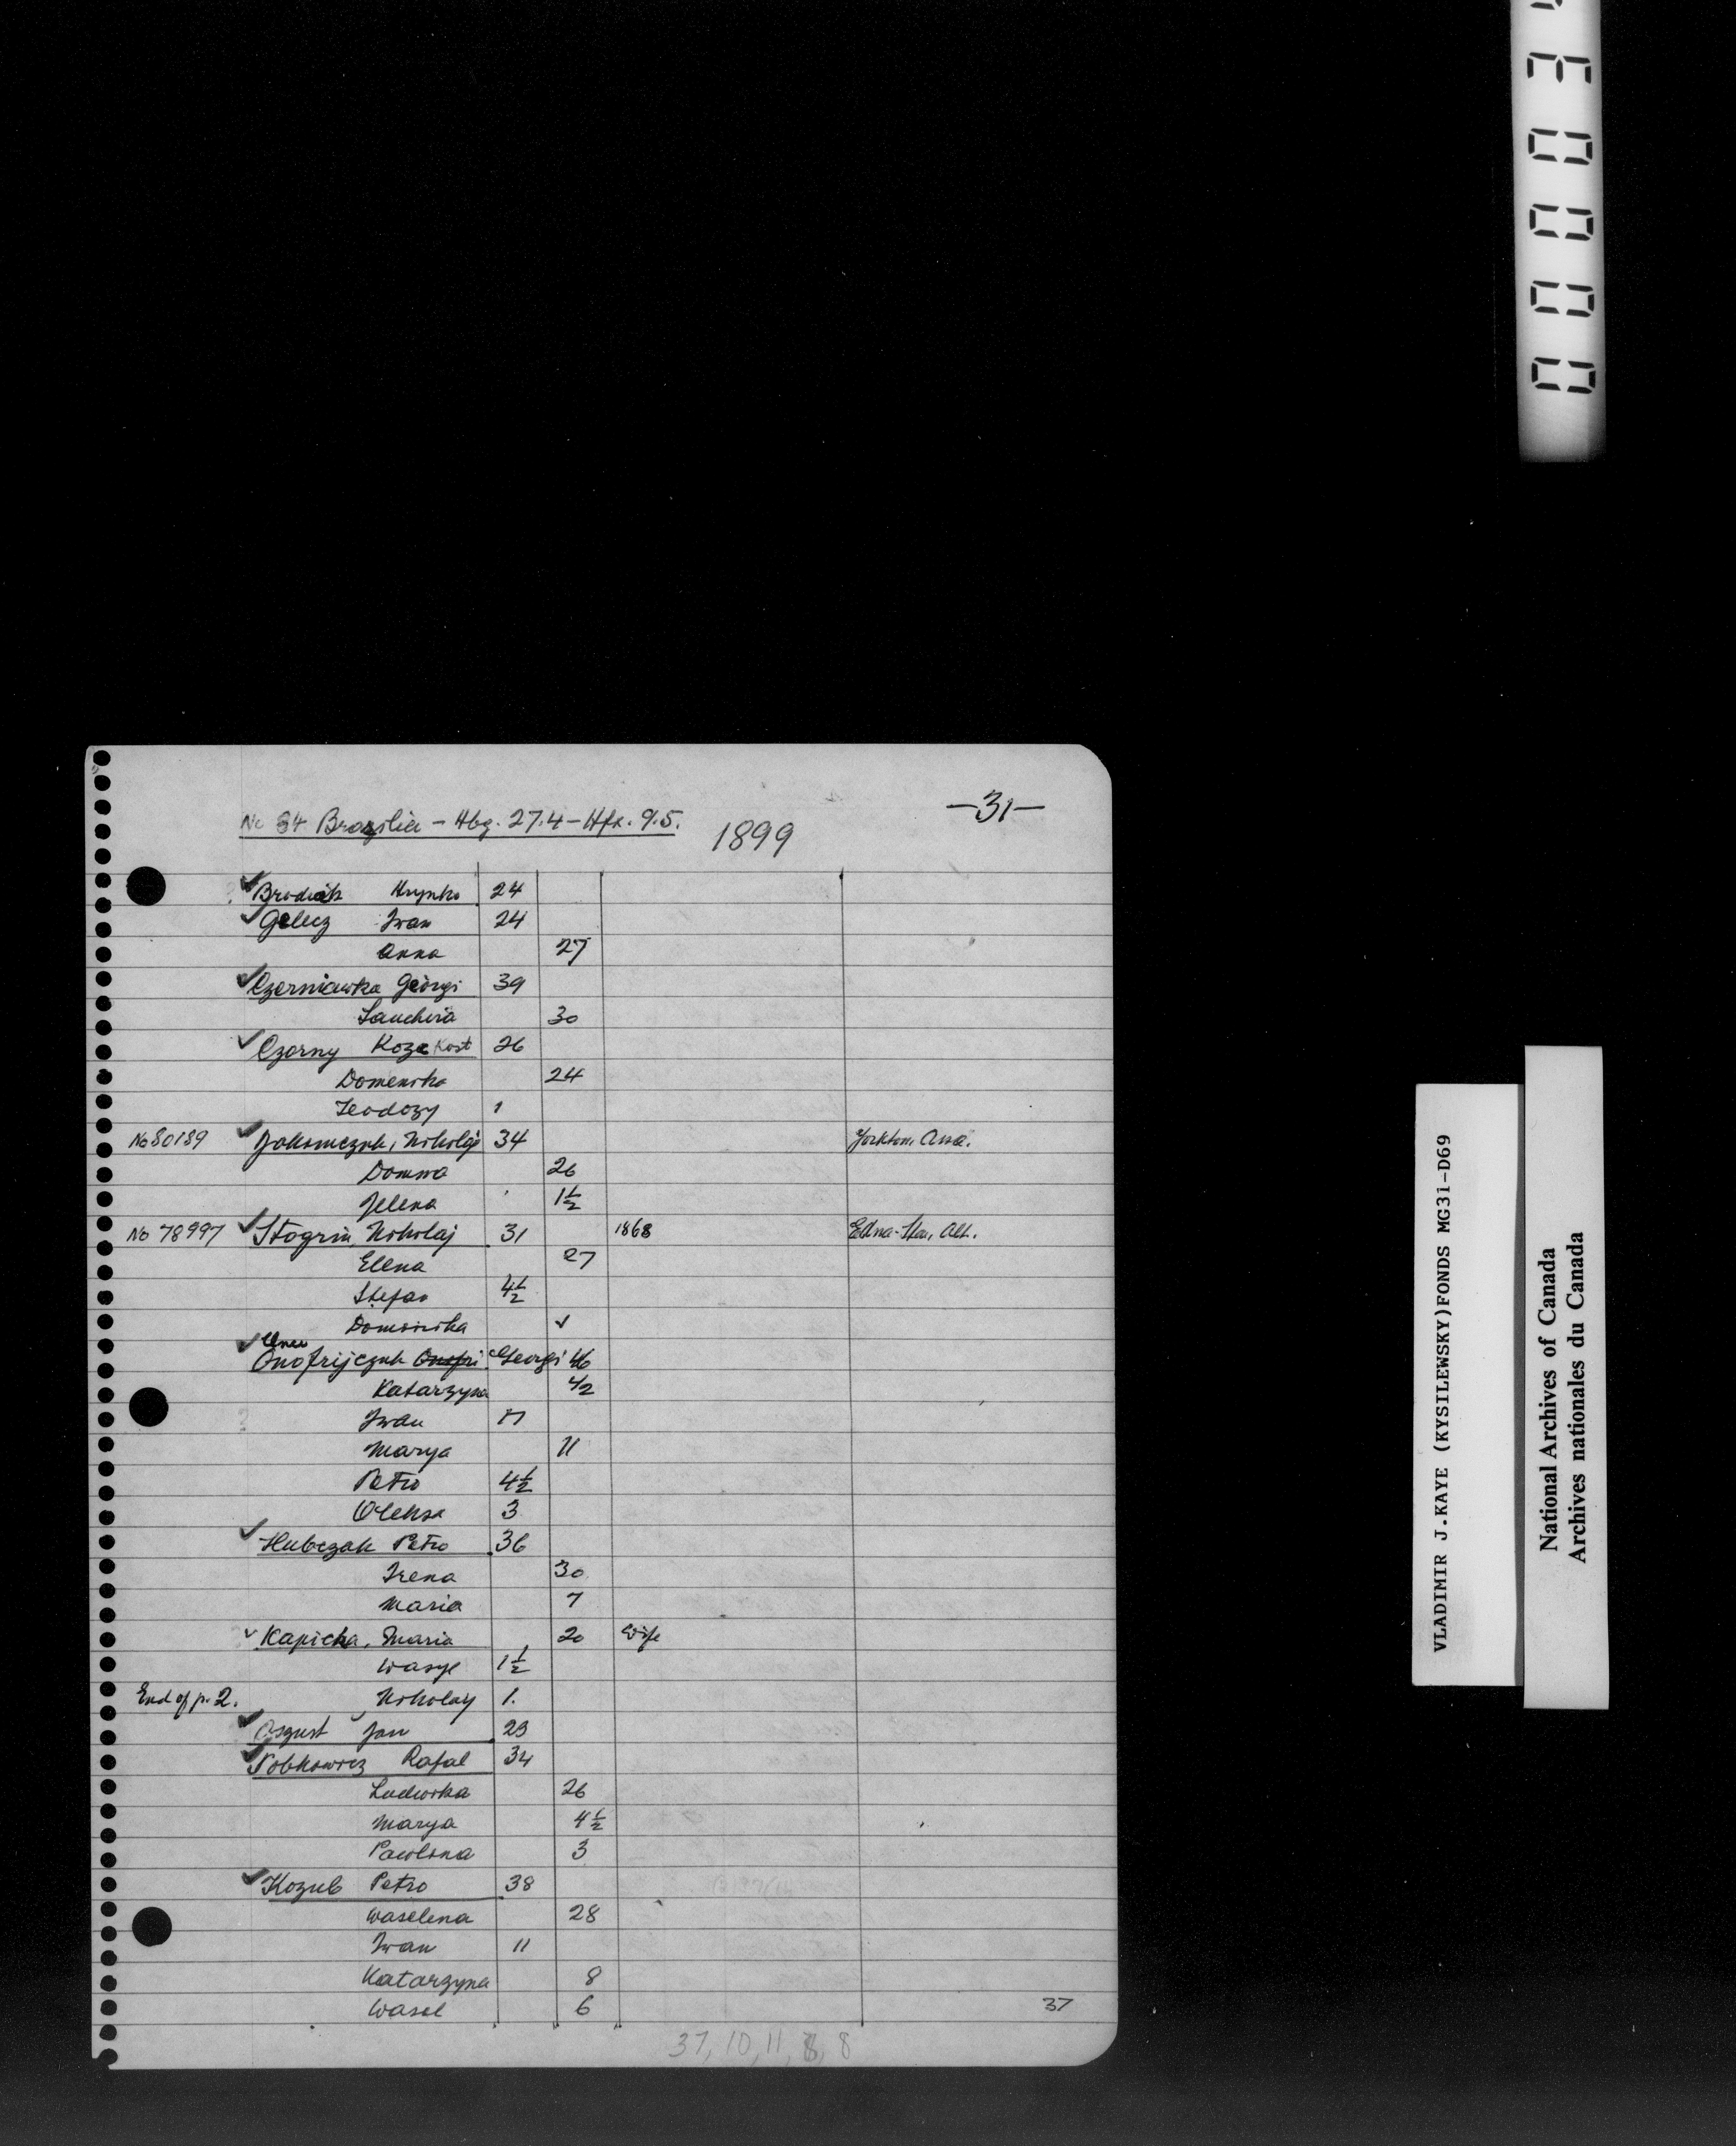 No 34 Brazilia - Hbg. 27.4 - Hfx. 9.5.
1899
-31-
Brodiak Hrynko 24
Gelecz Iwan 24
Anna 27
Czerniawka Georgi 39
30
Czorny Koze Kost 26
Domenika 24
Teodozy 1
No 80189 Jakomczuk, Nikolaj 34 Yorkton, Assa.
Domna 26
Jelena 1½
No 78997 Stogrin, Nikolaj 31 1868 Edna-Star, Alt.
Elena 27
Stefan 4½
Dominika ✓
Onofrijczuk Onofri Georgi 46
Katarzyna 42
Iwan 17
Marya 11
Petro 4½
Oleksa 3
Hubczak Petro 36
Irena 30
Maria 7
Kapicka, Maria 20 wife
Wasyl 1½
End of p. 2. Nikolay 1.
Oszust Jan 23
Sobkowicz Rafal 34
Ludwika 26
Marya 4½
Pawlina 3
Kozub Petro 38
Waselena 28
Iwan 11
Katarzyna 8
Wasel 6
37
37, 10, 11, 8, 8
00003
VLADIMIR J.KAYE (KYSILEWSKY)FONDS MG31-D69
National Archives of Canada
Archives nationales du Canada